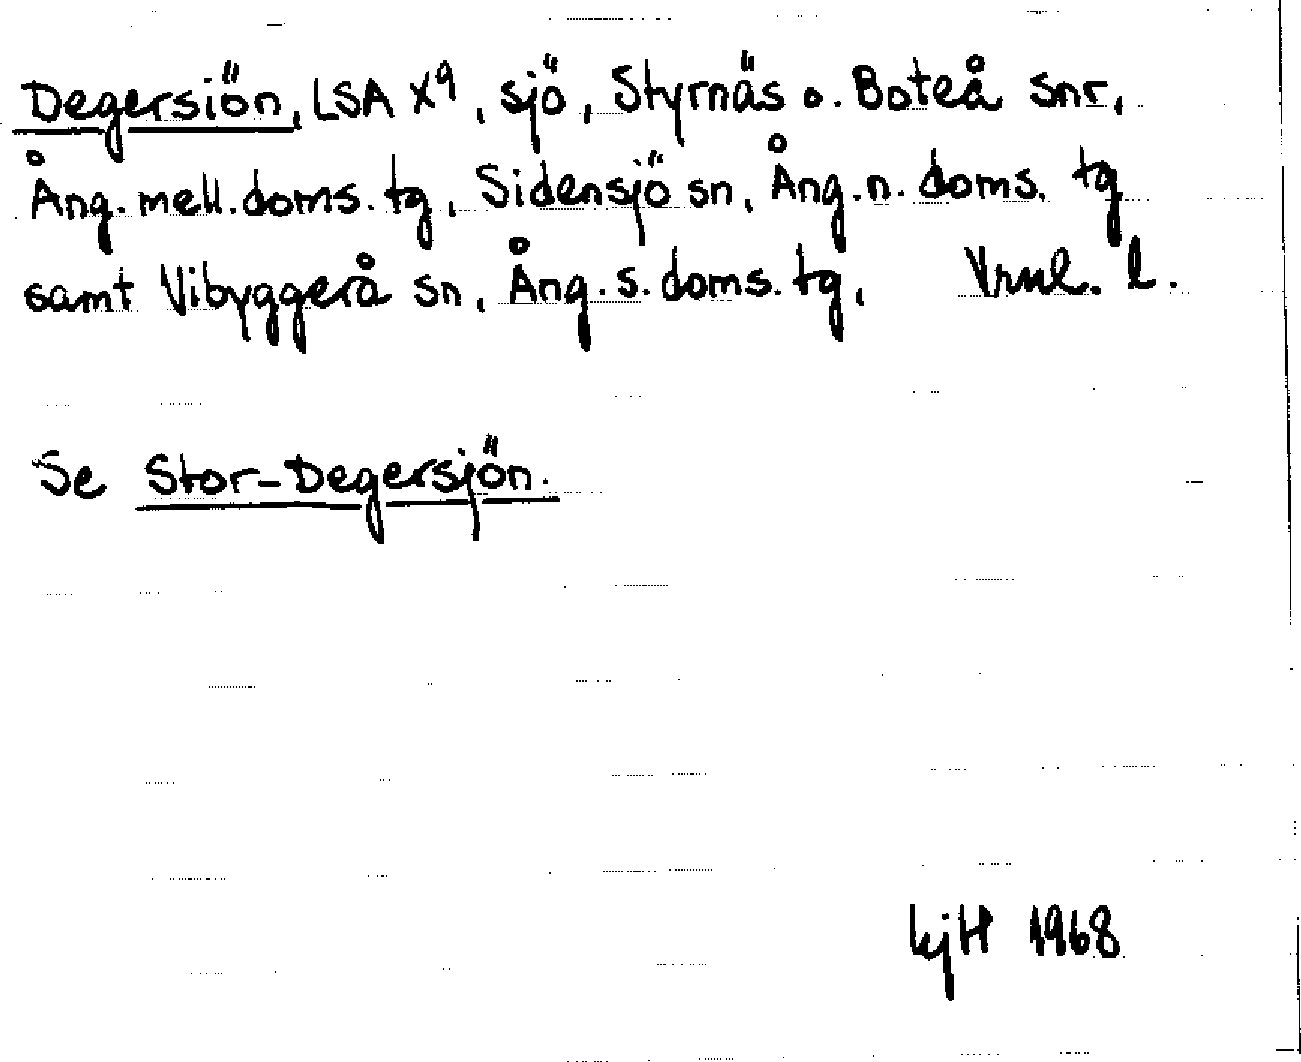 Degersiön, LSA X9, sjö, Styrnäs o. Boteå snr,
Ång. mell. doms. tg, Sidensjö sn, Ång. n. doms. tg
samt Vibyggerå sn, Ång. s. doms. tg, Vrml. l.
Se Stor-Degersjön.
LjH 1968